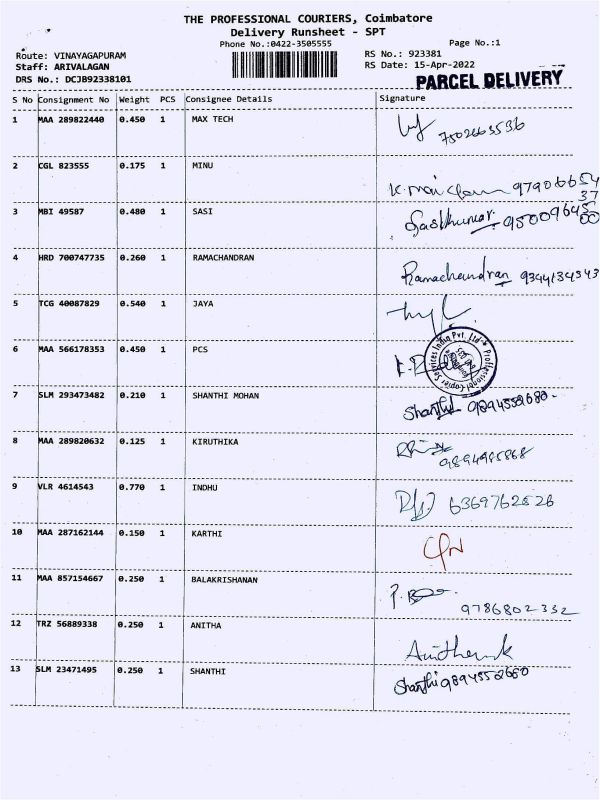 THE PROFESSIONAL COURIERS, Coimbatore
Delivery Runsheet - SPT
Phone No.:0422-3505555
Page No.:1
Route: VINAYAGAPURAM
RS No.: 923381
Staff: ARIVALAGAN
RS Date: 15-Apr-2022
DRS No.: DCJB92338101
PARCEL DELIVERY
S No Consignment No Weight PCS Consignee Details Signature
1 MAA 289822440 0.450 1 MAX TECH
7502663536
2 CGL 823555 0.175 1 MINU
3 MBI 49587 0.480 1 SASI
Sasikumar
4 HRD 700747735 0.260 1 RAMACHANDRAN
Ramachandran 9344134543
5 TCG 40087829 0.540 1 JAYA
6 MAA 566178353 0.450 1 PCS
7 SLM 293473482 0.210 1 SHANTHI MOHAN
Shanthi
8 MAA 289820632 0.125 1 KIRUTHIKA
9894985868
9 VLR 4614543 0.770 1 INDHU
6369762526
10 MAA 287162144 0.150 1 KARTHI
11 MAA 857154667 0.250 1 BALAKRISHANAN
9786802332
12 TRZ 56889338 0.250 1 ANITHA
13 SLM 23471495 0.250 1 SHANTHI
Shanthi 9894552660